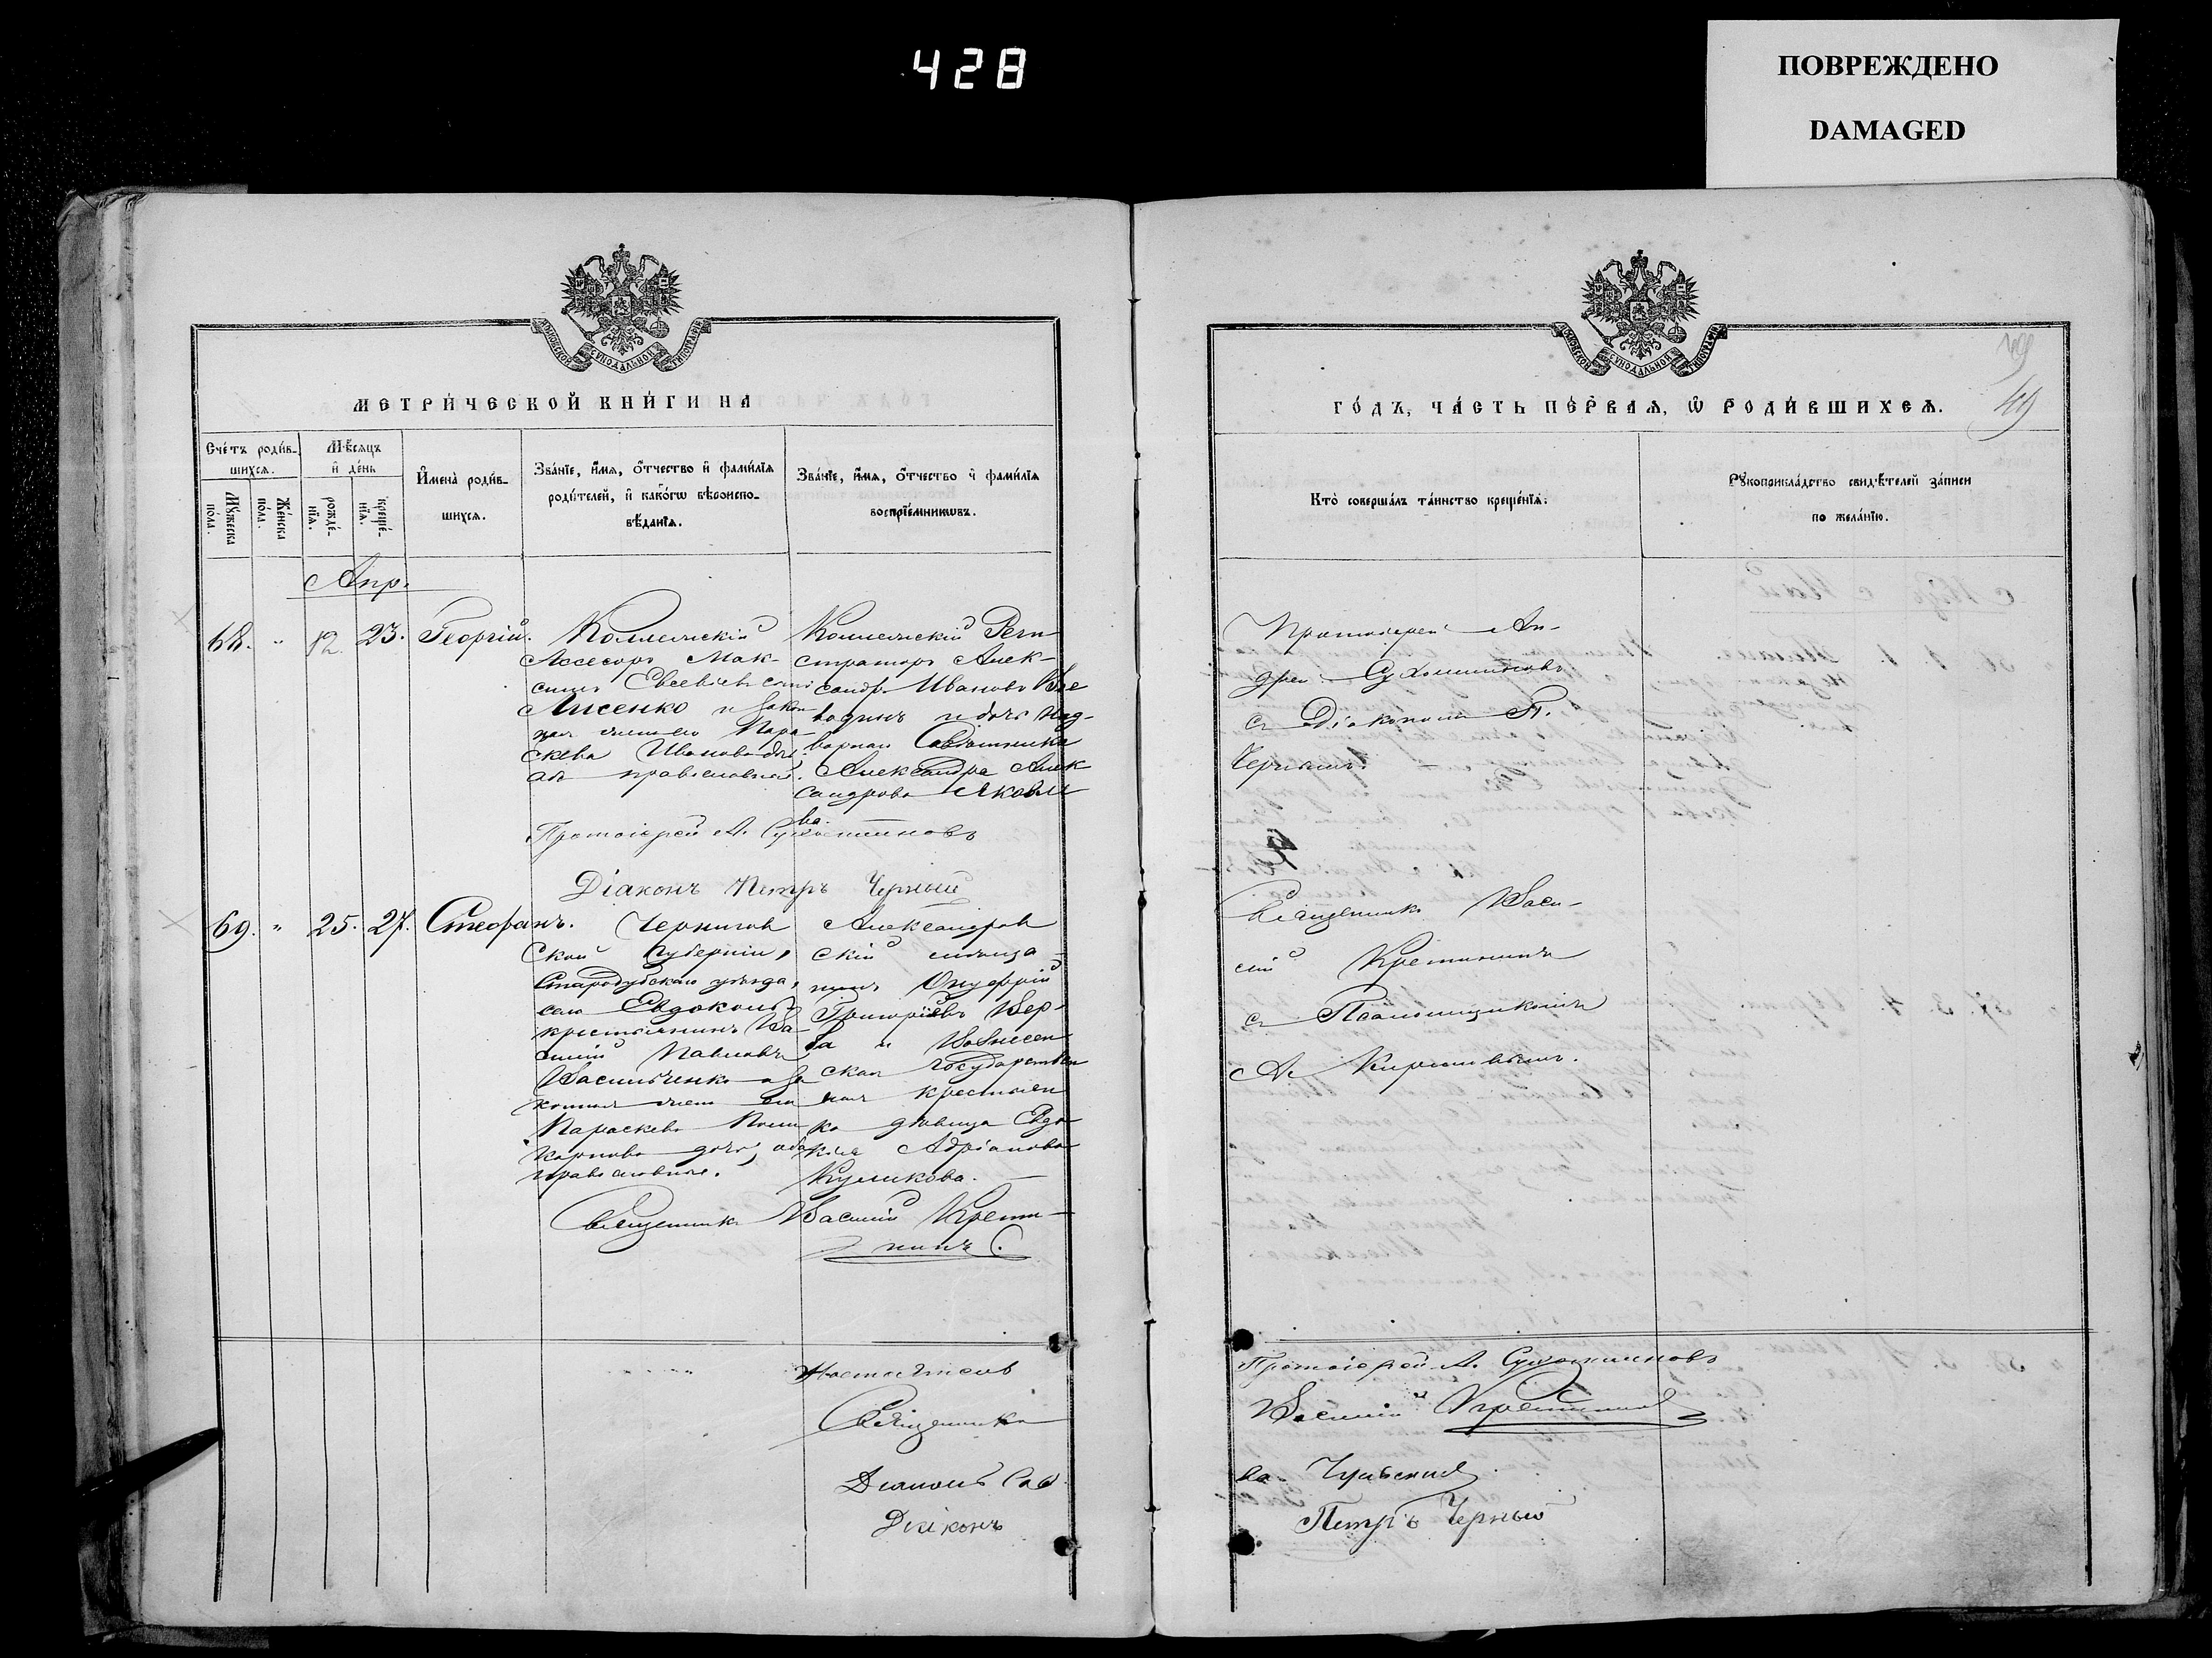 428
ПОВРЕЖДЕНО
DAMAGED
МОСКОВСКОЙ СѴНОДАЛЬНОЙ ТИПОГРАФІИ
МЕТРИ́ЧЕСКОЙ КНИ́ГИ НА
Сче́тъ роди́в-
шихсѧ.
Мꙋ́жеска
по́ла.
Же́нска
по́ла.
Мѣ́сѧцъ
и҆ де́нь
рожде́-
нїѧ.
креще́-
нїѧ.
И҆мена̀ роди́в-
шихсѧ.
Зва́нїе, и҆́мѧ, ѻ҆́тчество и҆ фами́лїѧ
роди́телей, и҆ како́гѡ вѣроиспо-
вѣ́данїѧ.
Зва́нїе, и҆́мѧ, ѻ҆́тчество и҆ фами́лїѧ
воспрїе́мникѡвъ.
Апр.
68. " 12. 23. Георгій.
Коллежскій
Ассесоръ Мак-
симъ Евсевіевъ сынъ
Лисенко и закон
ная жена его Пара-
скева Иванова дочь,
оба православные.
Коллежскій Реги
страторъ Алек-
сандръ Ивановъ Вое
водинъ и дочь Над-
ворнаго Совѣтника
Александра Алек
сандрова Яковле
ва.
Протоіерей А. Сухомлиновъ
Діаконъ Петръ Черный
69. " 25. 27. Стефанъ.
Чернигов
ской губерніи,
Стародубскаго уѣзда,
села
крестьянинъ Ва
силій Павловъ
Васильченко и за
конная жена его
Параскева Поли
карпова дочь, оба
православные.
Александров
скій мѣща
нинъ Онуфрій
Григорьевъ Вер-
ба и Вознесен
ская государствен
ная крестьян
ка дѣвица Евдо
кія Адріанова
Куликова.
Священникъ Василій Крети-
нинъ
Настоятель
Священникъ
Діаконъ Сав
Діаконъ
МОСКОВСКОЙ СѴНОДАЛЬНОЙ ТИПОГРАФІИ
49
49
ГО́ДЪ, ЧА́СТЬ ПЕ́РВАѦ, Ѡ҆ РОДИ́ВШИХСѦ.
Кто̀ соверша́лъ та́инство креще́нїѧ.
Рꙋкоприкла́дство свидѣ́телей за́писи
по жела́нїю.
Протоіерей Ан-
дрей Сухомлиновъ
съ Діакономъ П.
Чернымъ.
Священникъ Васи-
лій Кретининъ
съ Псаломщикомъ
А.
Протоіерей А. Сухомлиновъ
Василій Кретининъ
ва
Петръ Черный